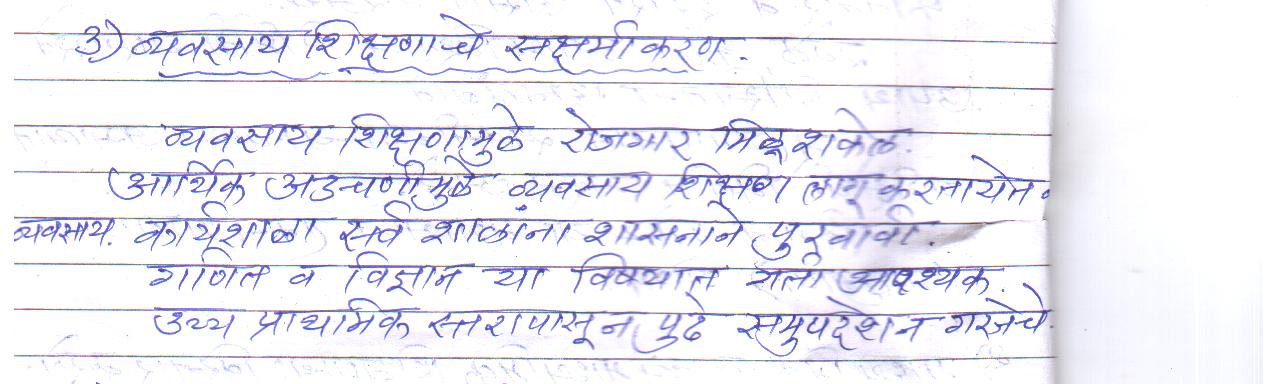 3) व्यवसाय शिक्षणाचे सक्षमीकरण.
व्यवसाय शिक्षणामुळे रोजगार मिळू शकेल.
आर्थिक अडचणीमुळे व्यवसाय शिक्षण लागू करता येत
व्यवसाय. कार्यशाळा सर्व शाळांना शासनाने पुरवावी.
गणित व विज्ञान या विषयात गती आवश्यक.
उच्च प्राथमिक स्तरापासून पुढे समुपदेशन गरजेचे.